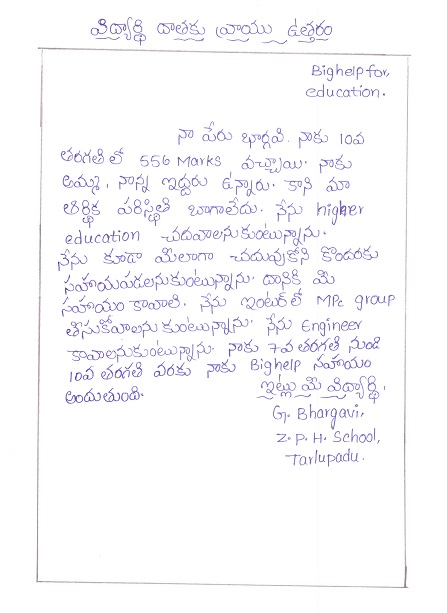 విద్యార్థి దాతకు వ్రాయు ఉత్తరం
Bighelp for,
education.
నా పేరు భార్గవి. నాకు 10వ
తరగతి లో 556 Marks వచ్చాయి. నాకు
అమ్మ, నాన్న ఇద్దరు ఉన్నారు. కాని మా
ఆర్థిక పరిస్థితి బాగాలేదు. నేను higher
education చదవాలనుకుంటున్నాను.
నేను కూడా మీలాగా చదువుకోని కొందరకు
సహాయపడలనుకుంటున్నాను. దానికి మీ
సహాయం కావాలి. నేను ఇంటర్ లో MPc group
తీసుకోవాలను కుంటున్నాను. నేను Engineer
కావాలనుకుంటున్నాను. నాకు 7వ తరగతి నుండి
10వ తరగతి వరకు నాకు Bighelp సహాయం
అందుతుంది.
ఇట్లు మీ విద్యార్థి,
G. Bhargavi,
Z. P. H. School,
Tarlupadu.